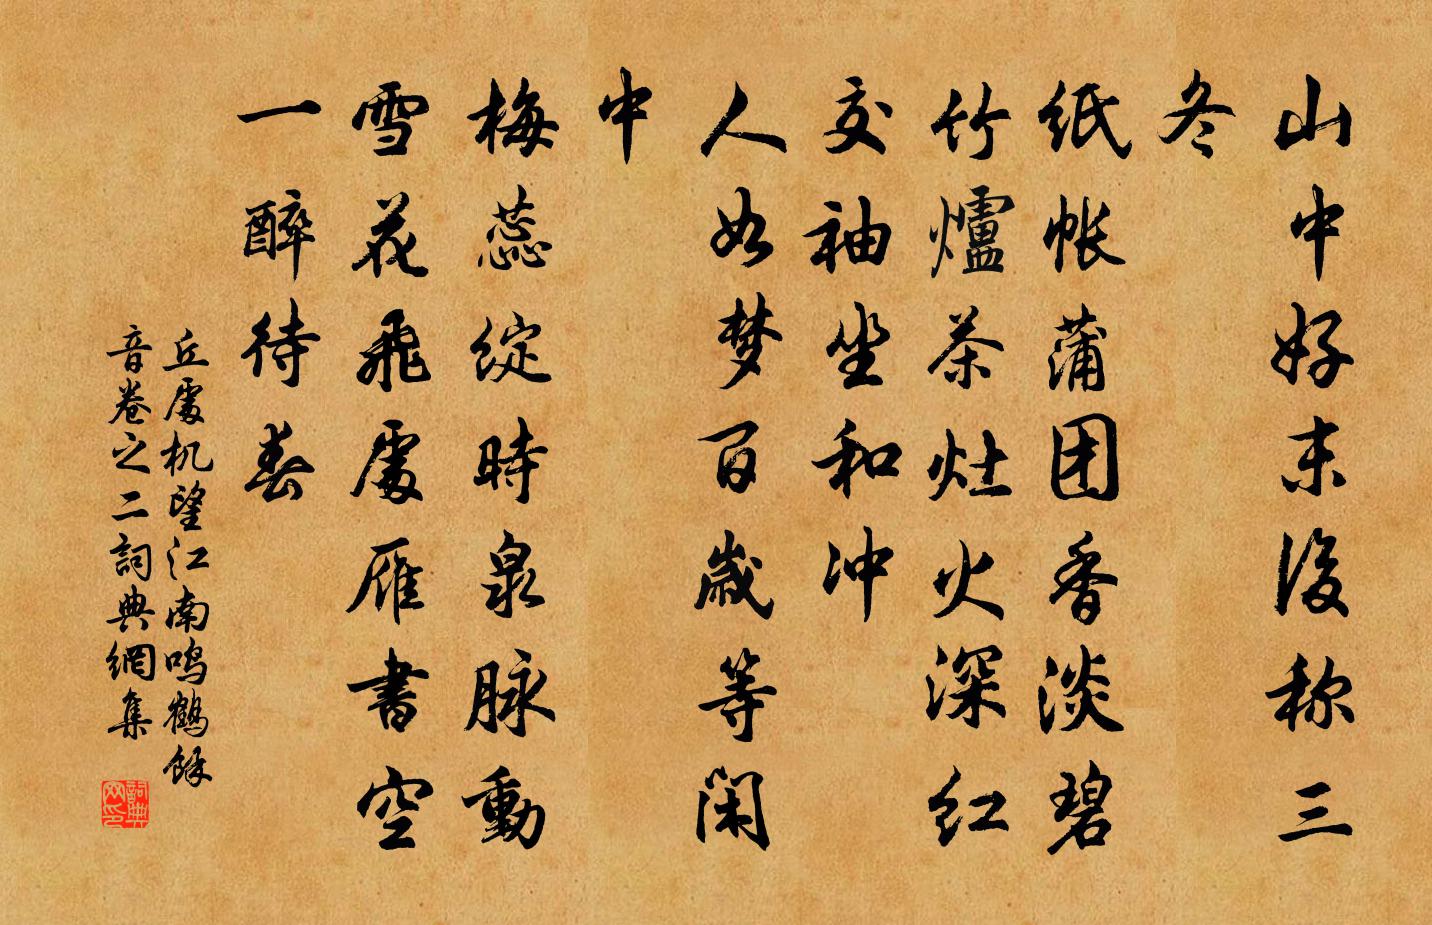 山中好末後称三
冬
纸帐蒲团香淡碧
竹爐茶灶火深红
交袖坐和冲
人如梦百歳等闲
中
梅蕊綻時泉脉動
雪花飛處雁書空
一醉待春
丘處机望江南鸣鶴餘
音卷之二詞典網集
詞典网印